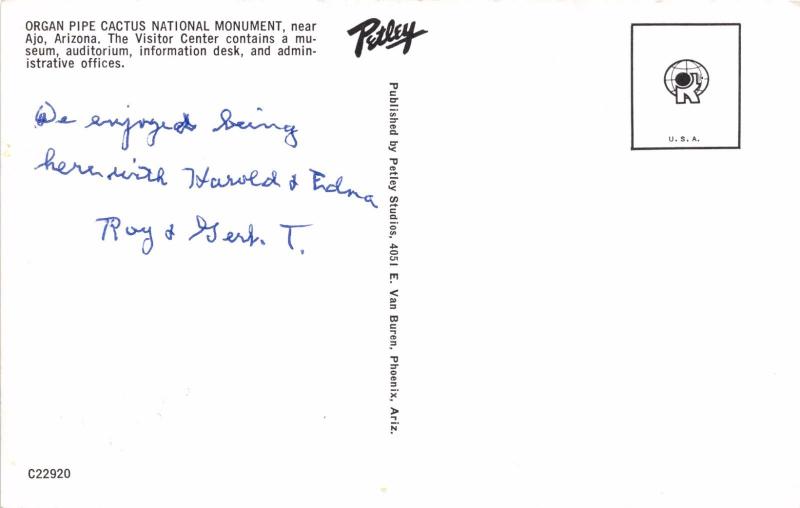 ORGAN PIPE CACTUS NATIONAL MONUMENT, near
Ajo, Arizona. The Visitor Center contains a mu-
seum, auditorium, information desk, and admin-
istrative offices.
Petley
We enjoyed being
here with Harold & Edna
Roy & Gert. T.
Published by Petley Studios, 4051 E. Van Buren, Phoenix, Ariz.
R
U.S.A.
C22920